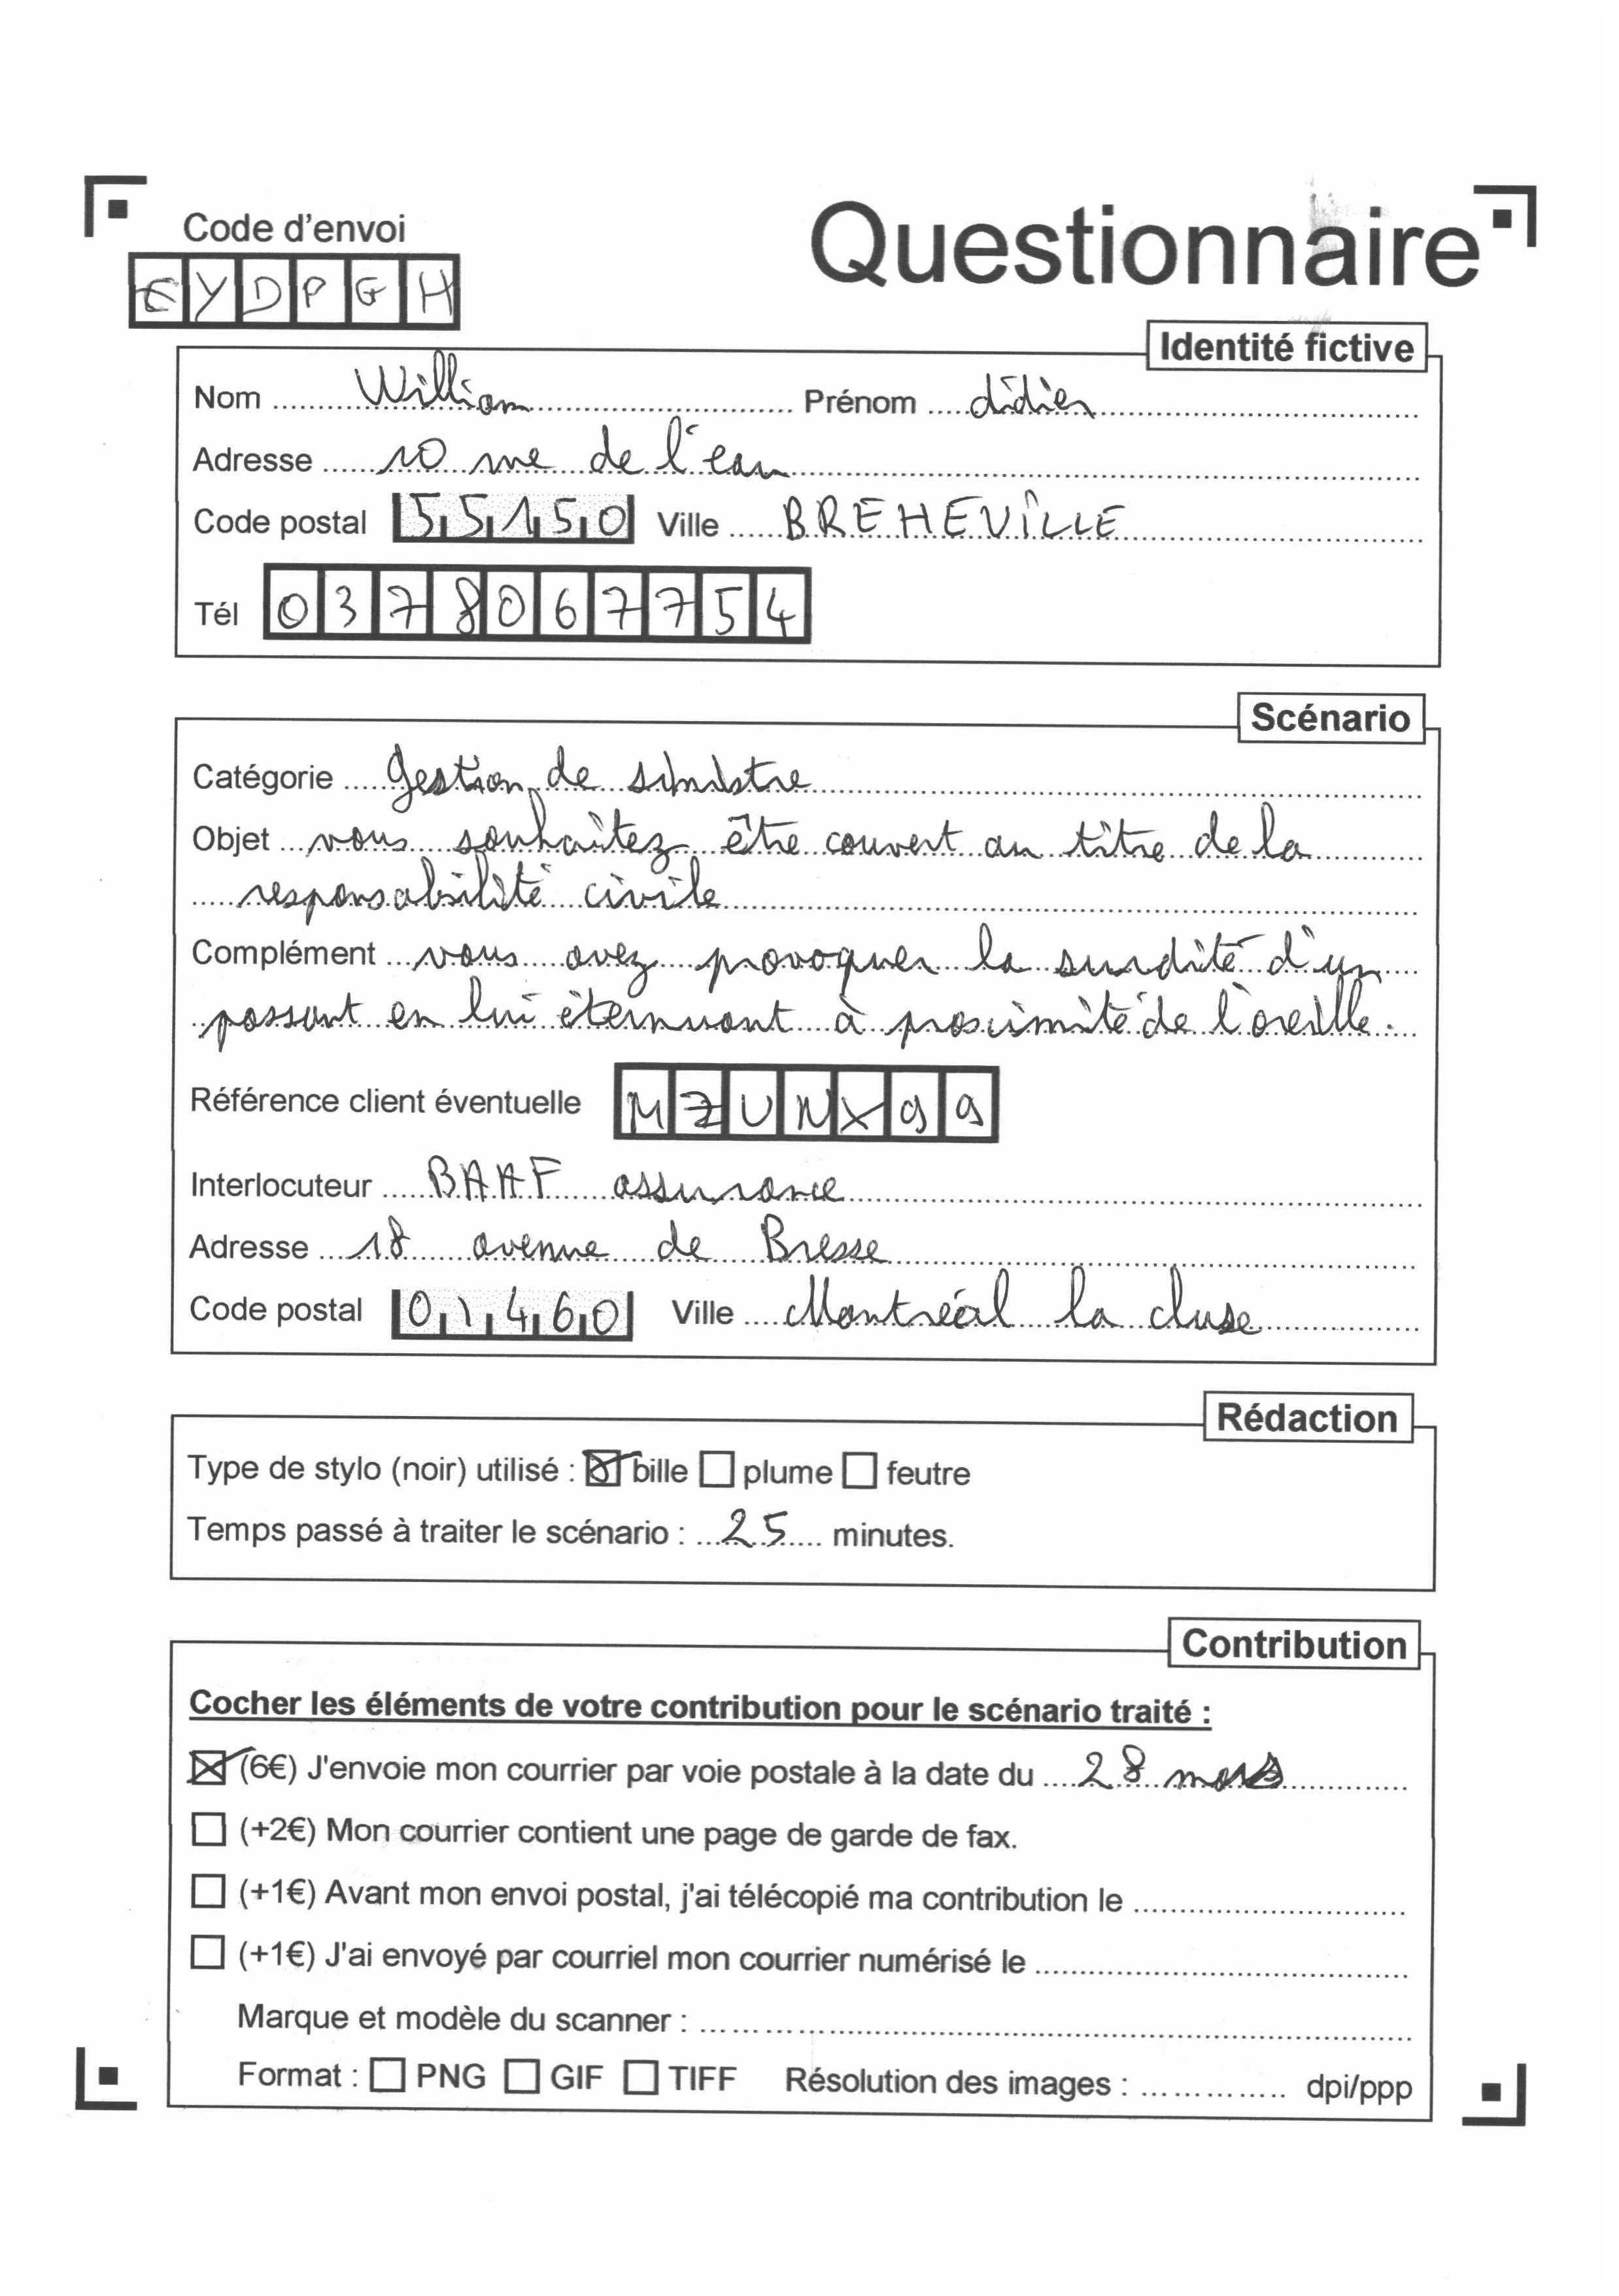 Code d'envoi
Questionnaire
EYDPGH
Identité fictive
Nom William Prénom didier
Adresse 10 rue de l'eau
Code postal 55150 Ville BREHEVILLE
Tél 0378067754
Scénario
Catégorie gestion de sinistre
Objet vous souhaitez être couvert au titre de la
responsabilité civile
Complément vous avez provoquer la surdité d'un
passant en lui éternuant à proximité de l'oreille.
Référence client éventuelle MZUNX99
Interlocuteur BAAF assurance
Adresse 18 avenue de Bresse
Code postal 01460 Ville Montréal la cluse
Rédaction
Type de stylo (noir) utilisé : bille plume feutre
Temps passé à traiter le scénario : 25 minutes.
Contribution
Cocher les éléments de votre contribution pour le scénario traité :
(6€) J'envoie mon courrier par voie postale à la date du 28 mars
(+2€) Mon courrier contient une page de garde de fax.
(+1€) Avant mon envoi postal, j'ai télécopié ma contribution le
(+1€) J'ai envoyé par courriel mon courrier numérisé le
Marque et modèle du scanner :
Format : PNG GIF TIFF Résolution des images : dpi/ppp